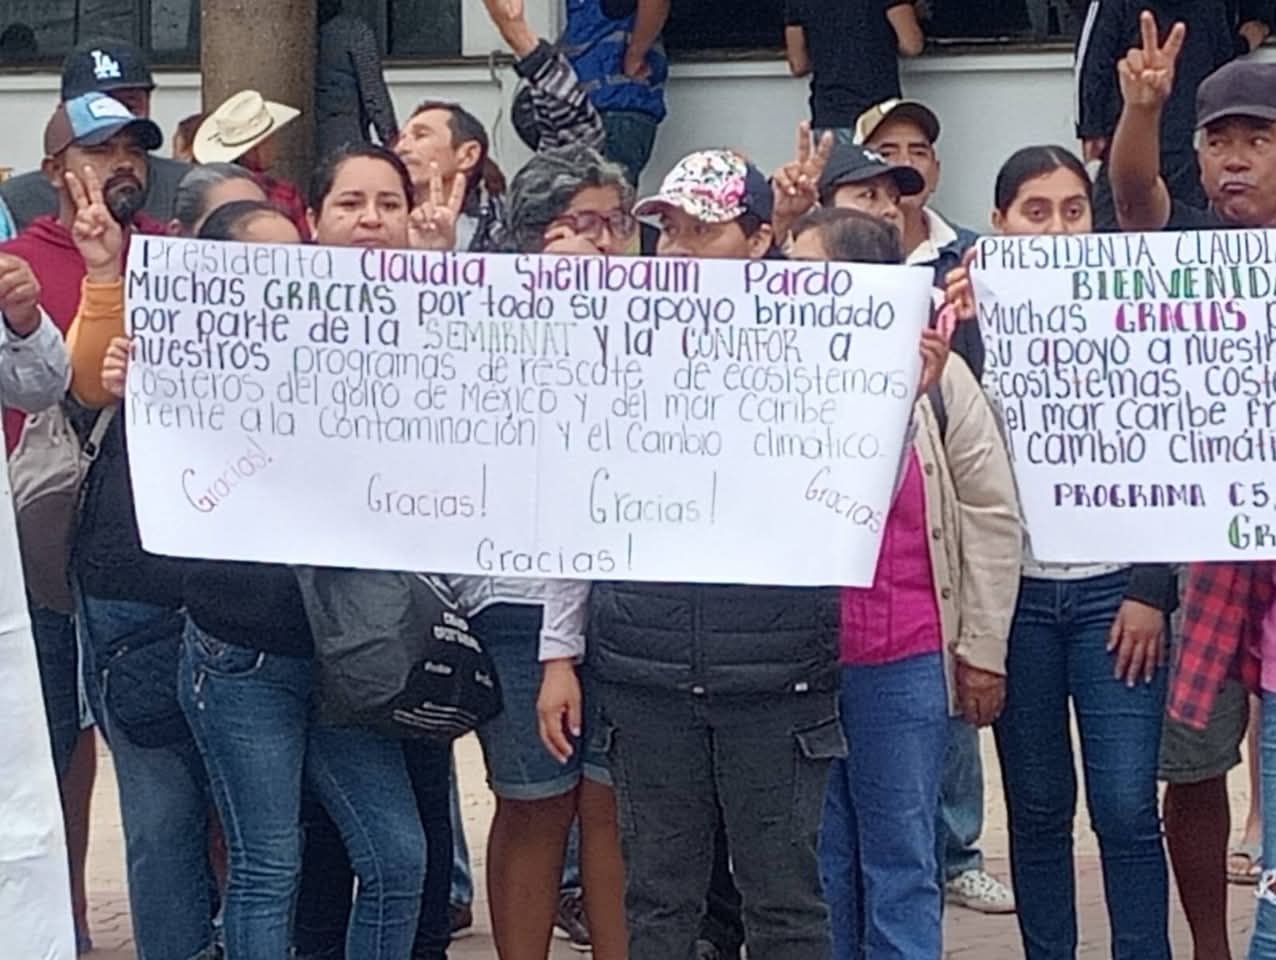 LA
Presidenta Claudia Sheinbaum Pardo
Muchas GRACIAS por todo su apoyo brindado
por parte de la SEMARNAT y la CONAFOR a
nuestros programas de rescate de ecosistemas
costeros del golfo de México y del mar caribe
frente a la contaminación y el cambio climático.
Gracias! Gracias! Gracias! Gracias
Gracias!
PRESIDENTA CLAUDI
BIENVENIDA
Muchas GRACIAS P
su apoyo a nuestr
ecosistemas cost
del mar caribe fr
l cambio climáti
PROGRAMA C5,
GR